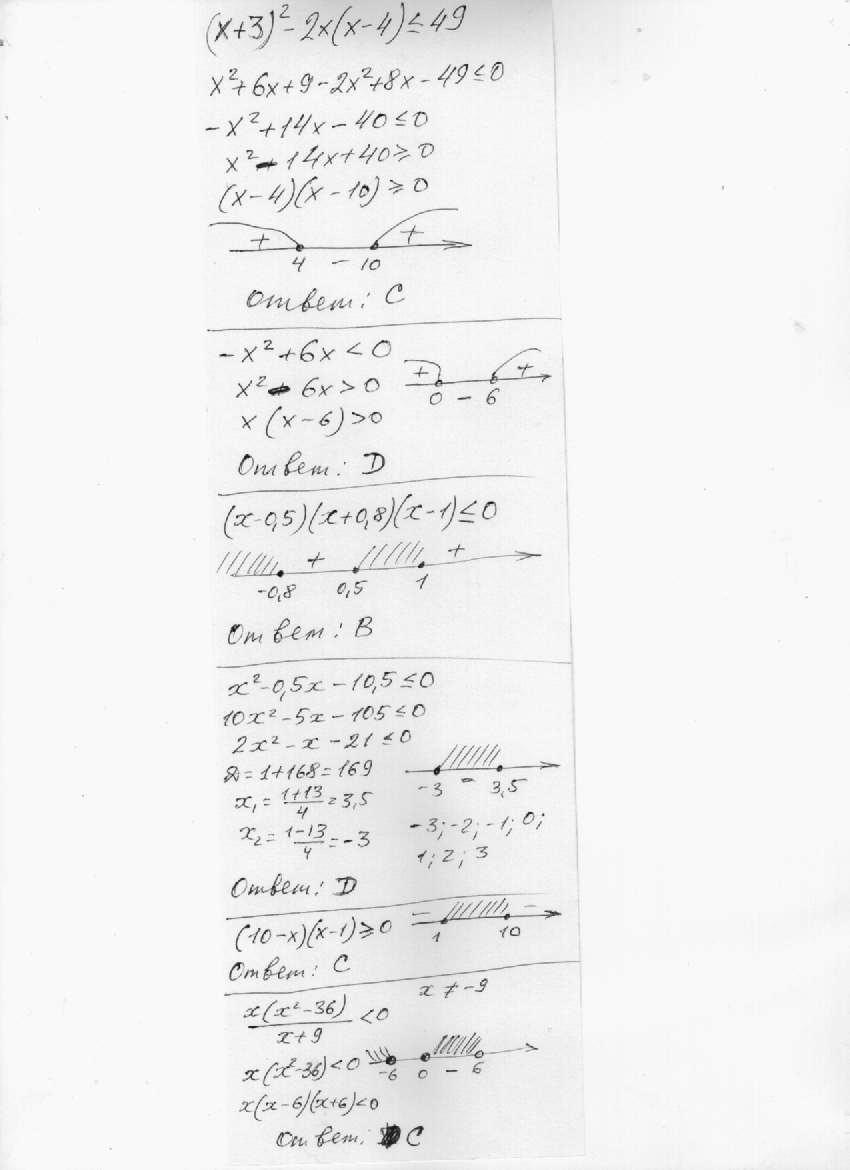 (x+3)²-2x(x-4)≤49
x²+6x+9-2x²+8x-49≤0
-x²+14x-40≤0
x²-14x+40≥0
(x-4)(x-10)≥0
+ +
4 - 10
Ответ: C
-x²+6x<0
x²-6x>0
x(x-6)>0
+ +
0 - 6
Ответ: D
(x-0,5)(x+0,8)(x-1)≤0
+ +
-0,8 0,5 1
Ответ: B
x²-0,5x-10,5≤0
10x²-5x-105≤0
2x²-x-21≤0
D=1+168=169
x₁=(1+13)/4=3,5
x₂=(1-13)/4=-3
-3 - 3,5
-3;-2;-1;0;
1;2;3
Ответ: D
(10-x)(x-1)≥0
- -
1 10
Ответ: C
x(x²-36)/(x+9)<0
x≠-9
x(x²-36)<0
x(x-6)(x+6)<0
-6 0 - 6
Ответ: C